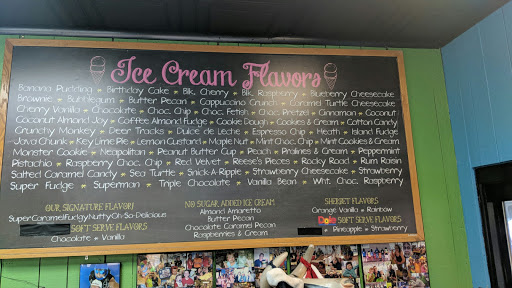 Ice Cream Flavors
Banana Pudding * Birthday Cake * Blk. Cherry * Blk. Raspberry * Blueberry Cheesecake
Brownie * Bubblegum * Butter Pecan * Cappuccino Crunch * Caramel Turtle Cheesecake
Cherry Vanilla * Chocolate * Choc. Chip * Choc. Fetish * Choc. Pretzel * Cinnamon * Coconut
Coconut Almond Joy * Coffee Almond Fudge * Cookie Dough * Cookies & Cream * Cotton Candy
Crunchy Monkey * Deer Tracks * Dulce de Leche * Espresso Chip * Heath * Island Fudge
Java Chunk * Key Lime Pie * Lemon Custard * Maple Nut * Mint Choc. Chip * Mint Cookies & Cream
Monster Cookie * Neapolitan * Peanut Butter Cup * Peach * Pralines & Cream * Peppermint
Pistachio * Raspberry Choc. Chip * Red Velvet * Reese's Pieces * Rocky Road * Rum Raisin
Salted Caramel Candy * Sea Turtle * Snick-A-Ripple * Strawberry Cheesecake * Strawberry
Super Fudge * Superman * Triple Chocolate * Vanilla Bean * Wht. Choc. Raspberry
OUR SIGNATURE FLAVOR!
SuperCaramelFudgyNuttyOh-So-Delicious
SOFT SERVE FLAVORS
Chocolate * Vanilla
NO SUGAR ADDED ICE CREAM
Almond Amaretto
Butter Pecan
Chocolate Caramel Pecan
Raspberries & Cream
SHERBET FLAVORS
Orange Vanilla * Rainbow
Dole SOFT SERVE FLAVORS
Pineapple * Strawberry